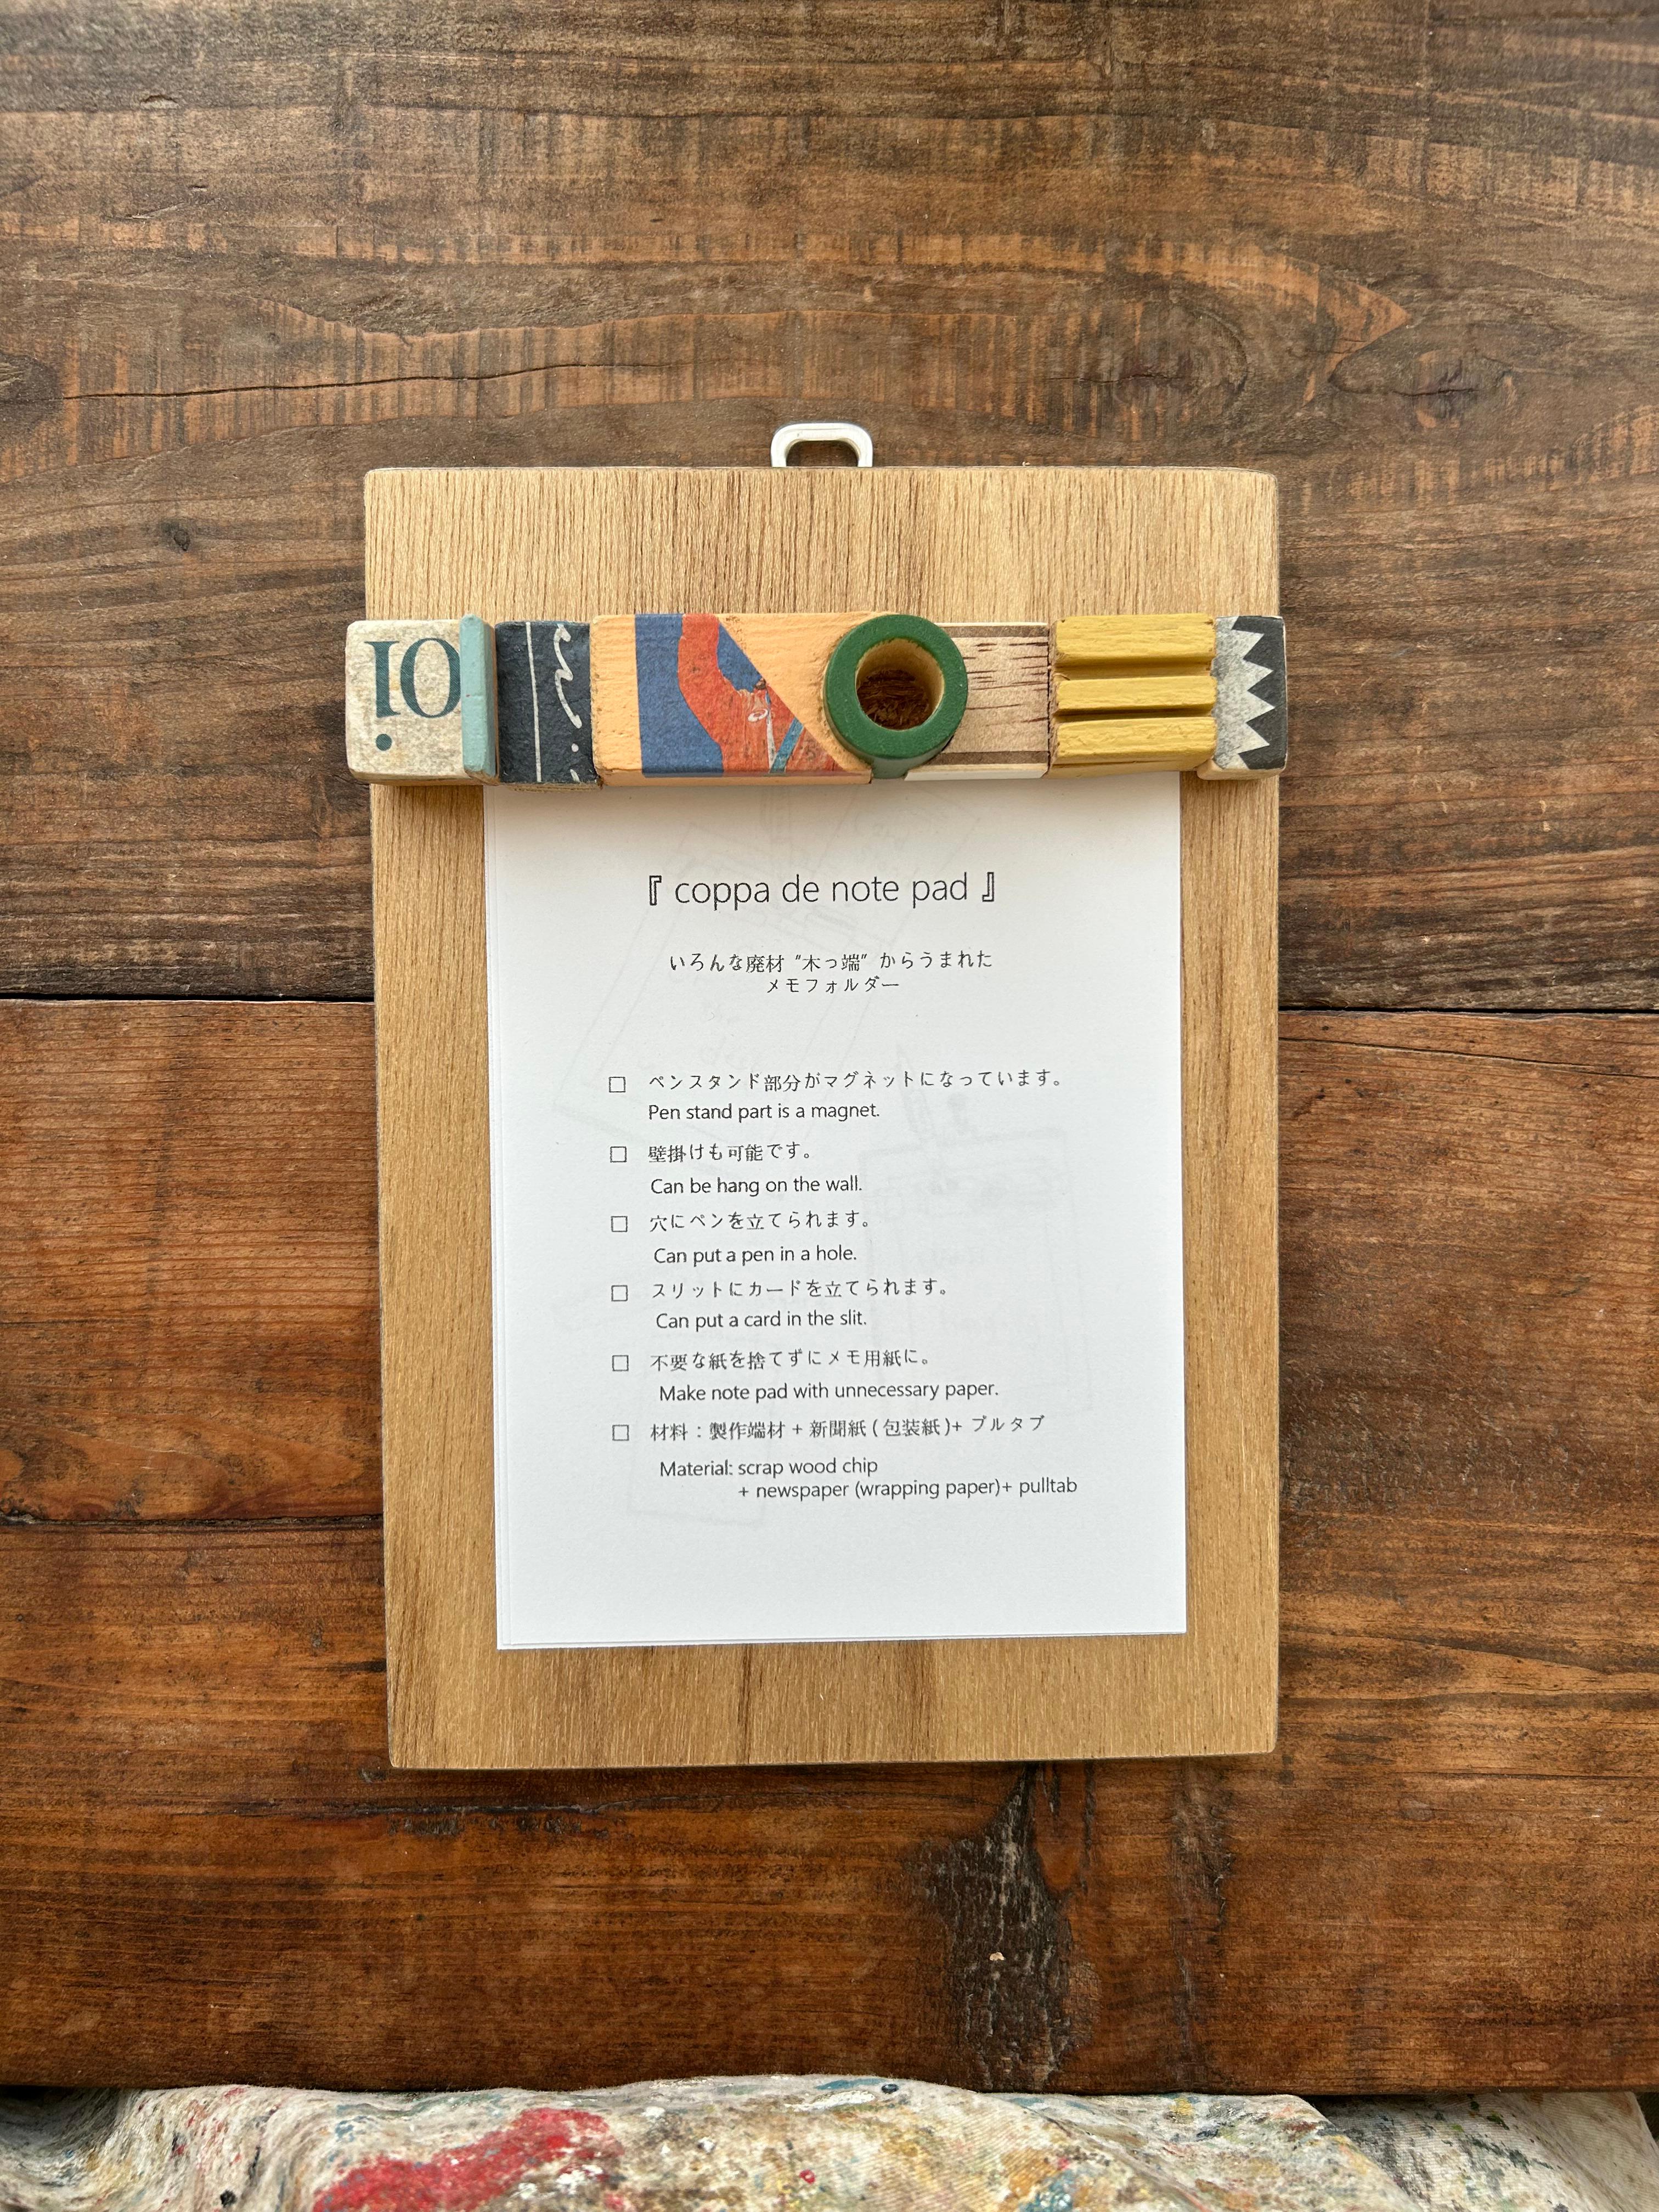 『 coppa de note pad 』
いろんな廃材 "木っ端" からうまれた
メモフォルダー
□ ペンスタンド部分がマグネットになっています。
Pen stand part is a magnet.
□ 壁掛けも可能です。
Can be hang on the wall.
□ 穴にペンを立てられます。
Can put a pen in a hole.
□ スリットにカードを立てられます。
Can put a card in the slit.
□ 不要な紙を捨てずにメモ用紙に。
Make note pad with unnecessary paper.
□ 材料：製作端材 + 新聞紙 ( 包装紙 )+ プルタブ
Material: scrap wood chip
+ newspaper (wrapping paper)+ pulltab